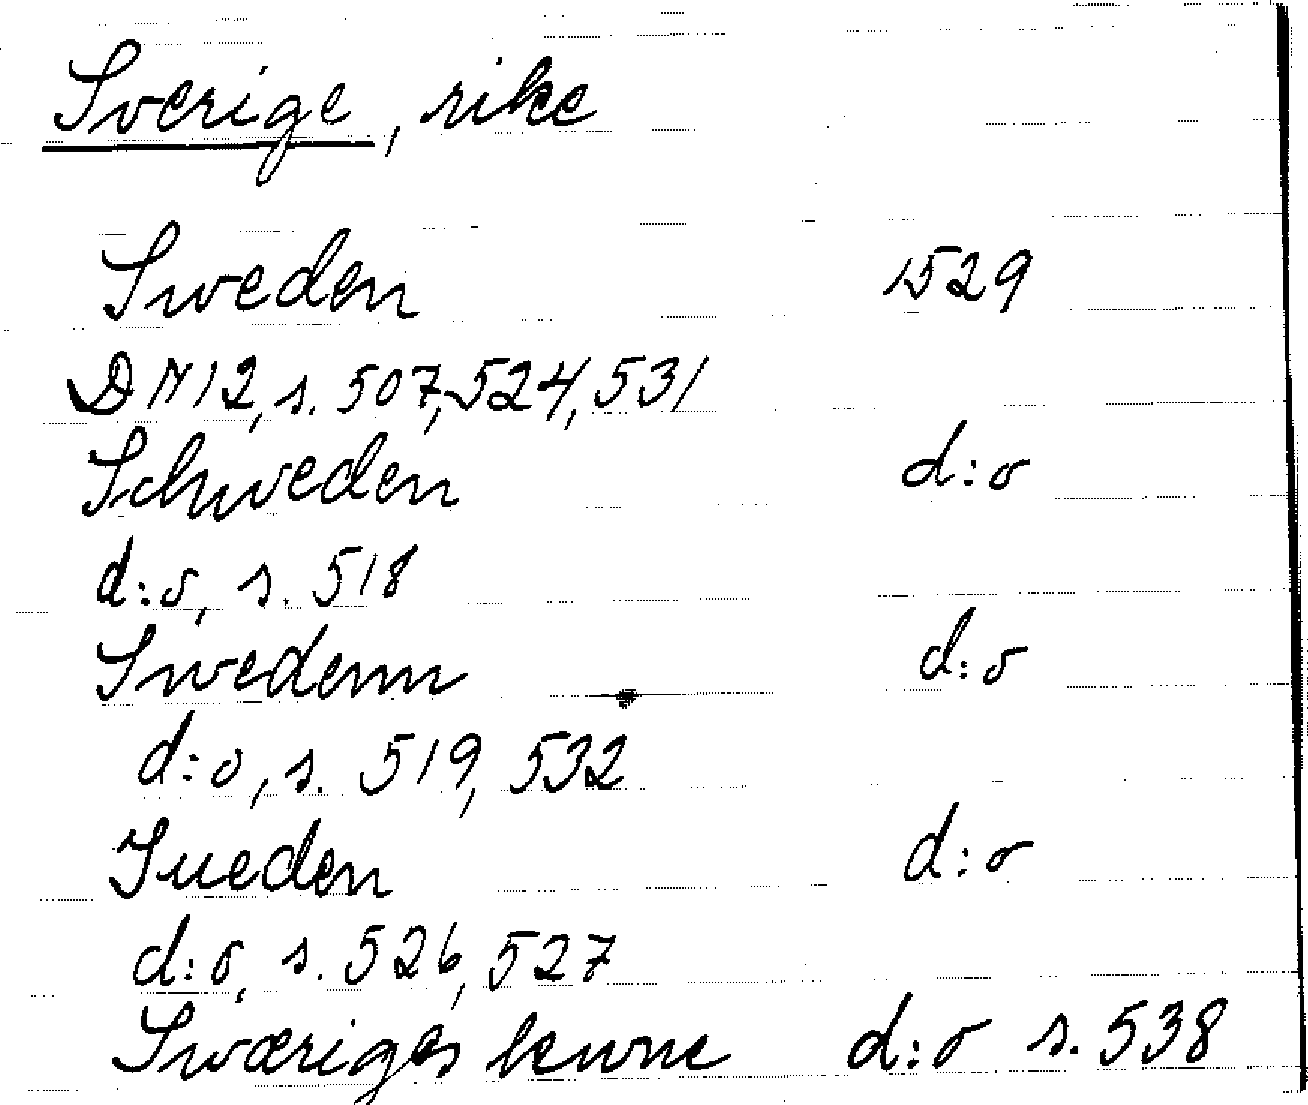 Sverige, rike
Sweden 1529
DN12, s. 507, 524, 531
Schweden d:o
d:o, s. 518
Swedenn d:o
d:o, s. 519, 532
Sueden d:o
d:o, s. 526, 527
Swæriges d:o s. 538